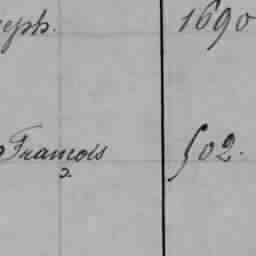 eph. 1690
Francois 502.
2